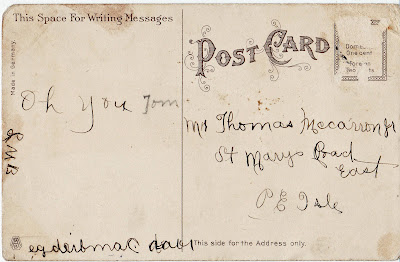 This Space For Writing Messages
POST CARD
Made in Germany.
Domestic
One cent
Foreign
Two cents
Oh You Tom
LMB
Mr Thomas Mccarron Jr
St Marys Road
East
P E Isle
This side for the Address only.